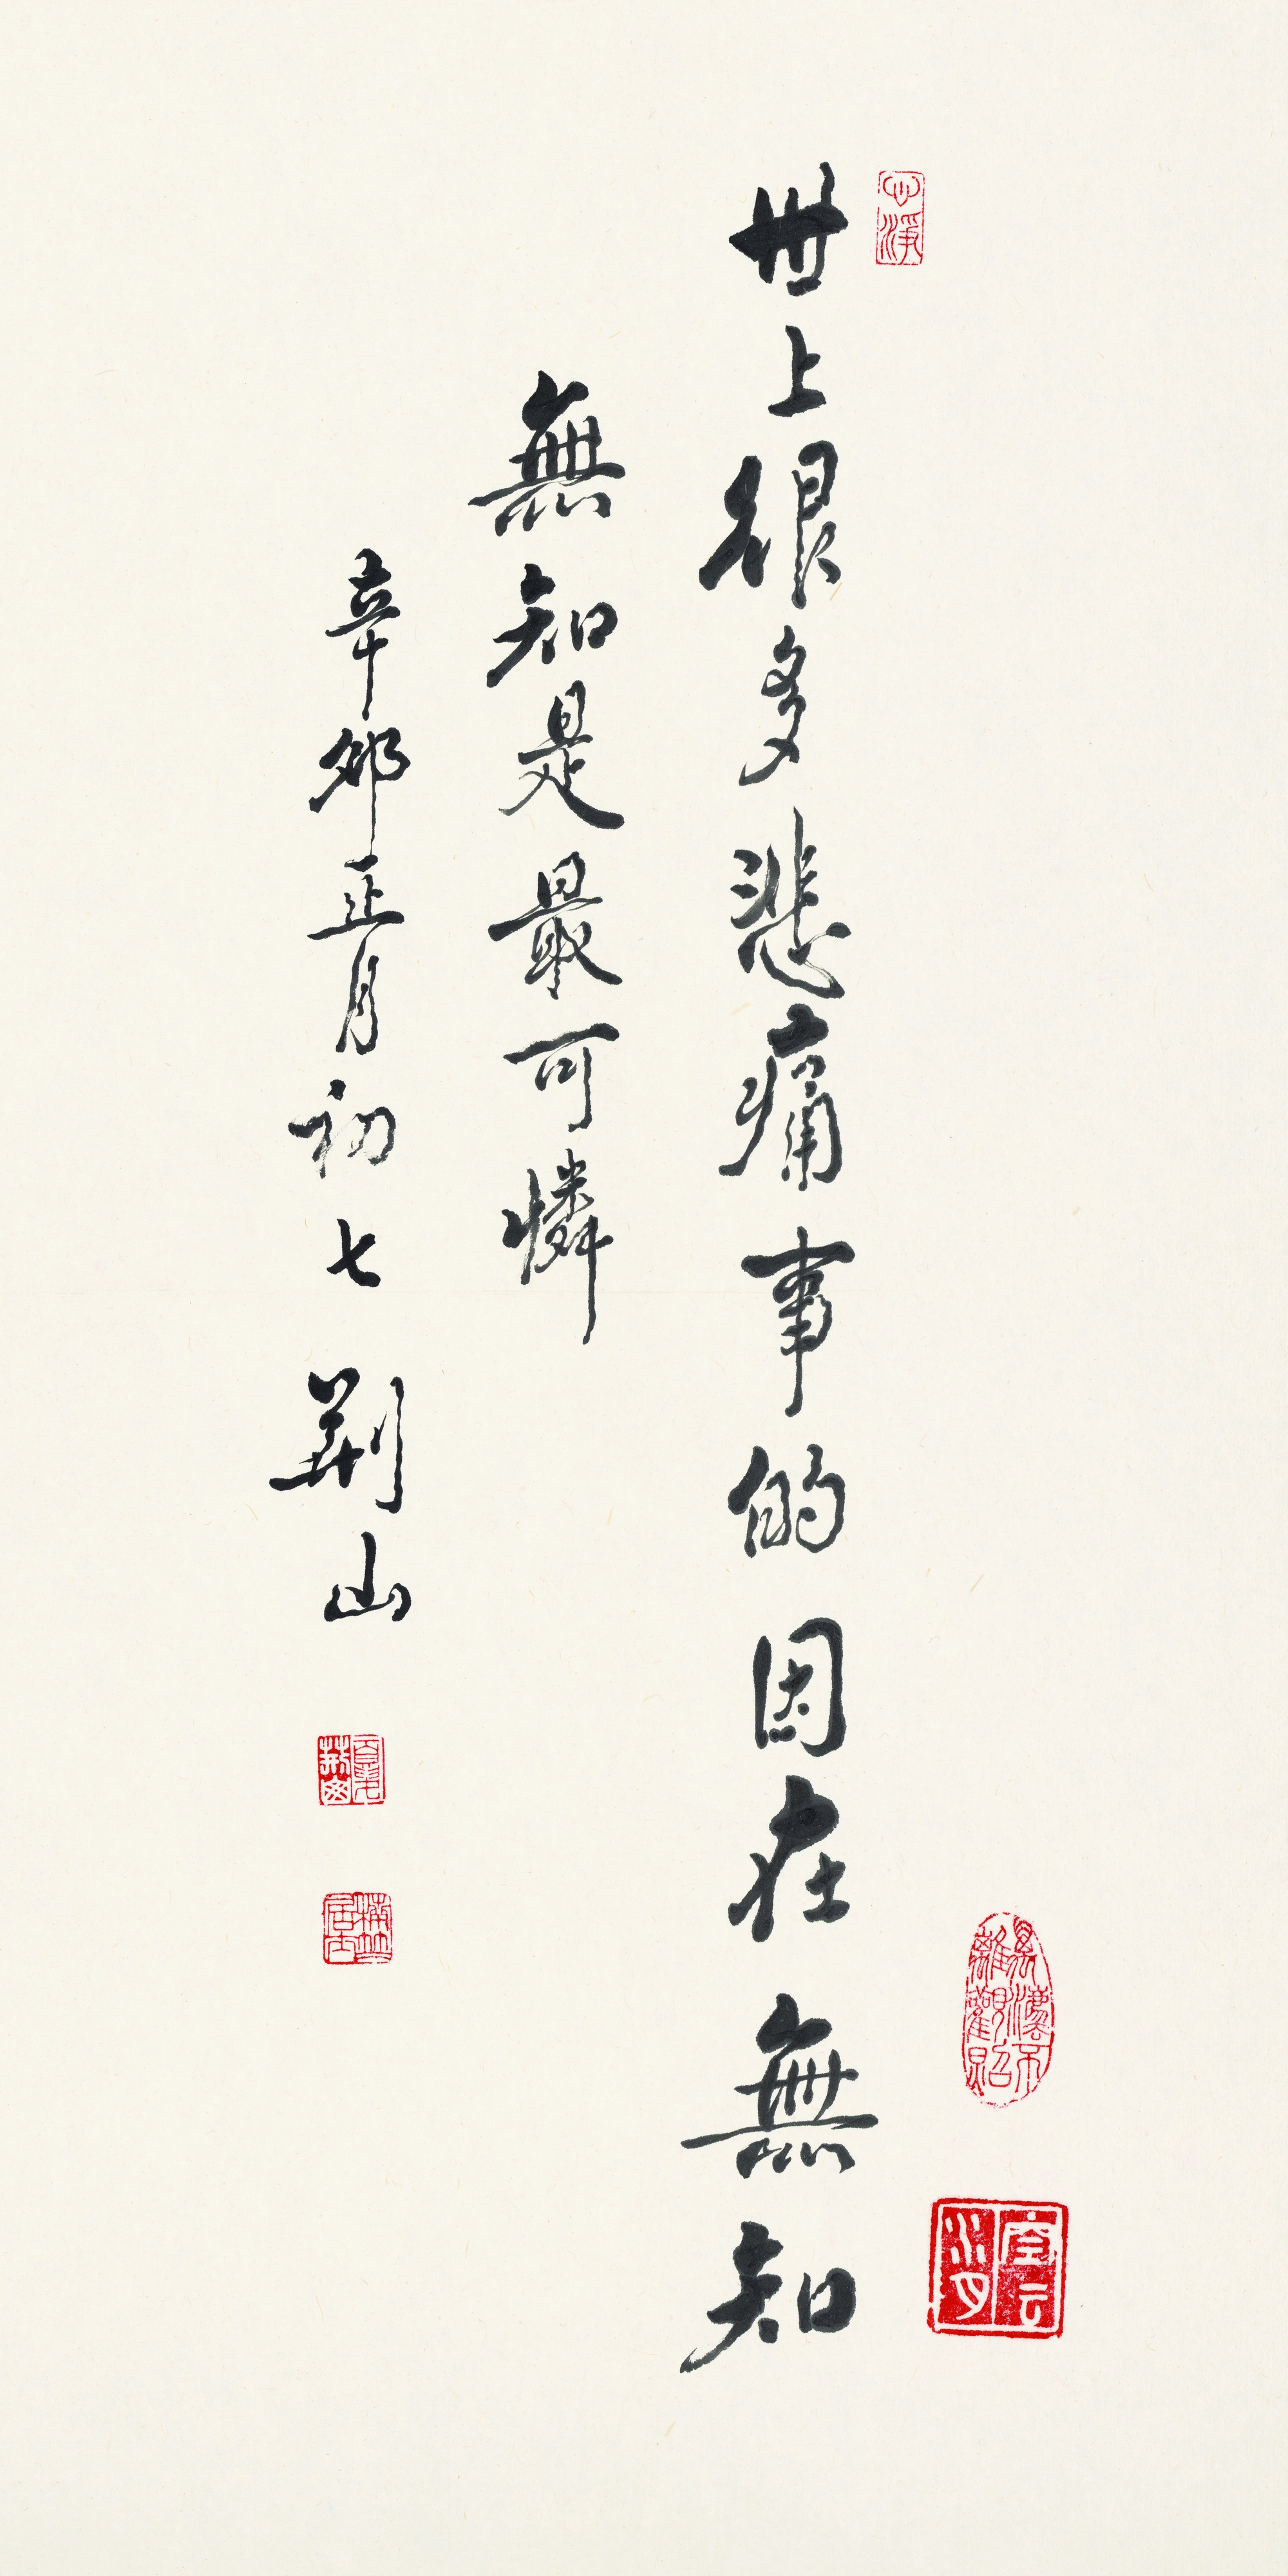 世上很多悲痛事的因在無知
無知是最可憐
辛卯正月初七 荆山
心淨